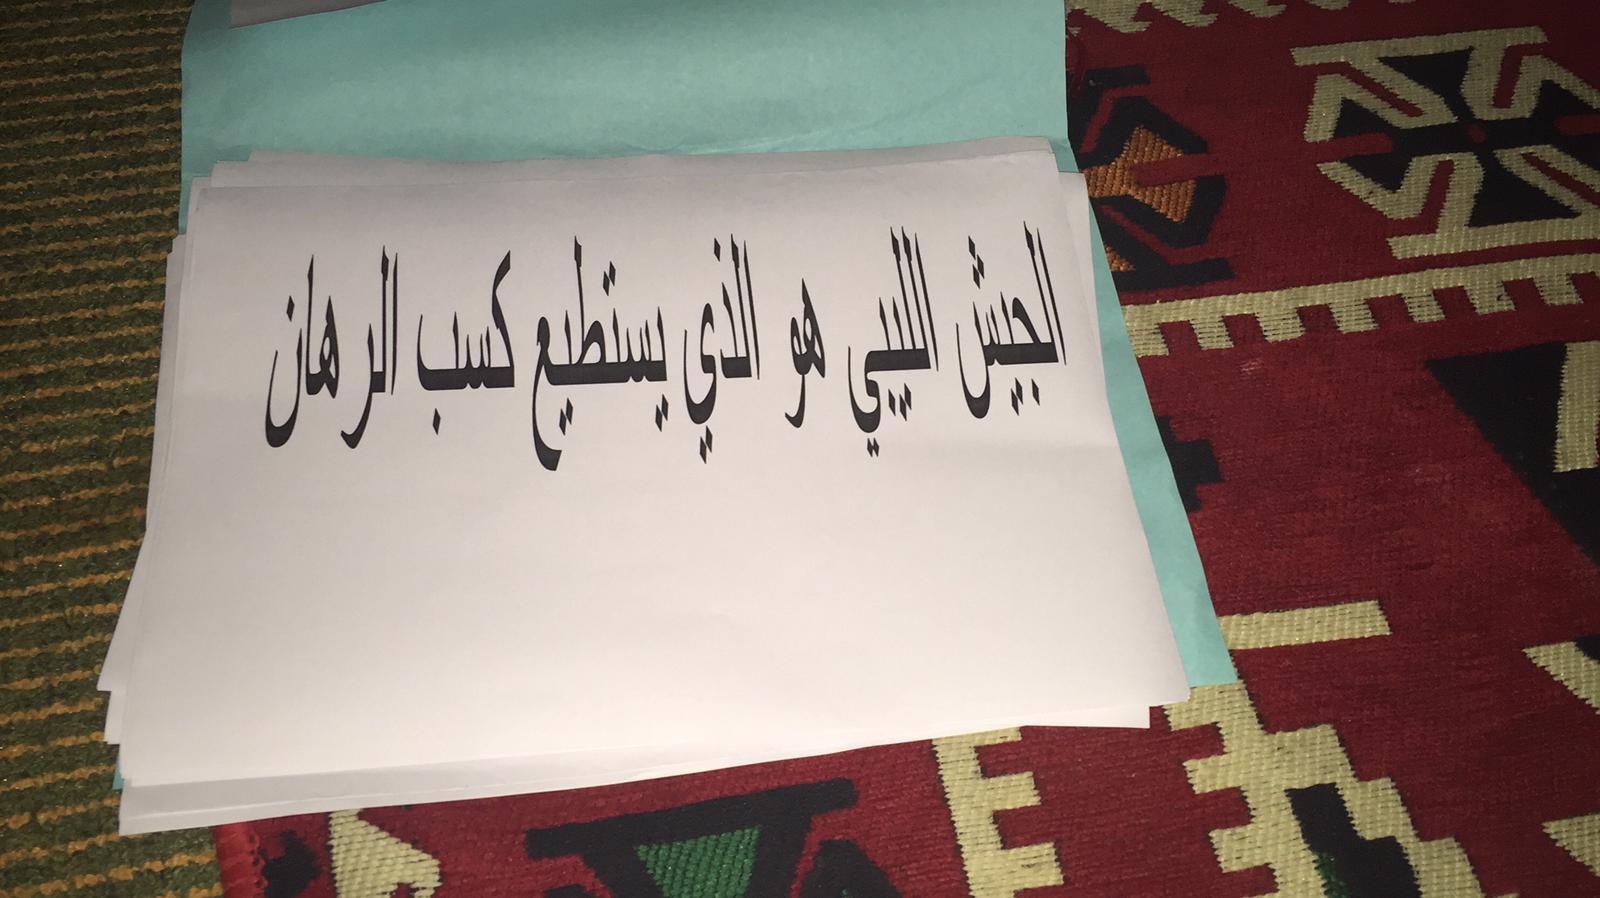 الجيش الليبي هو الذي يستطيع كسب الرهان